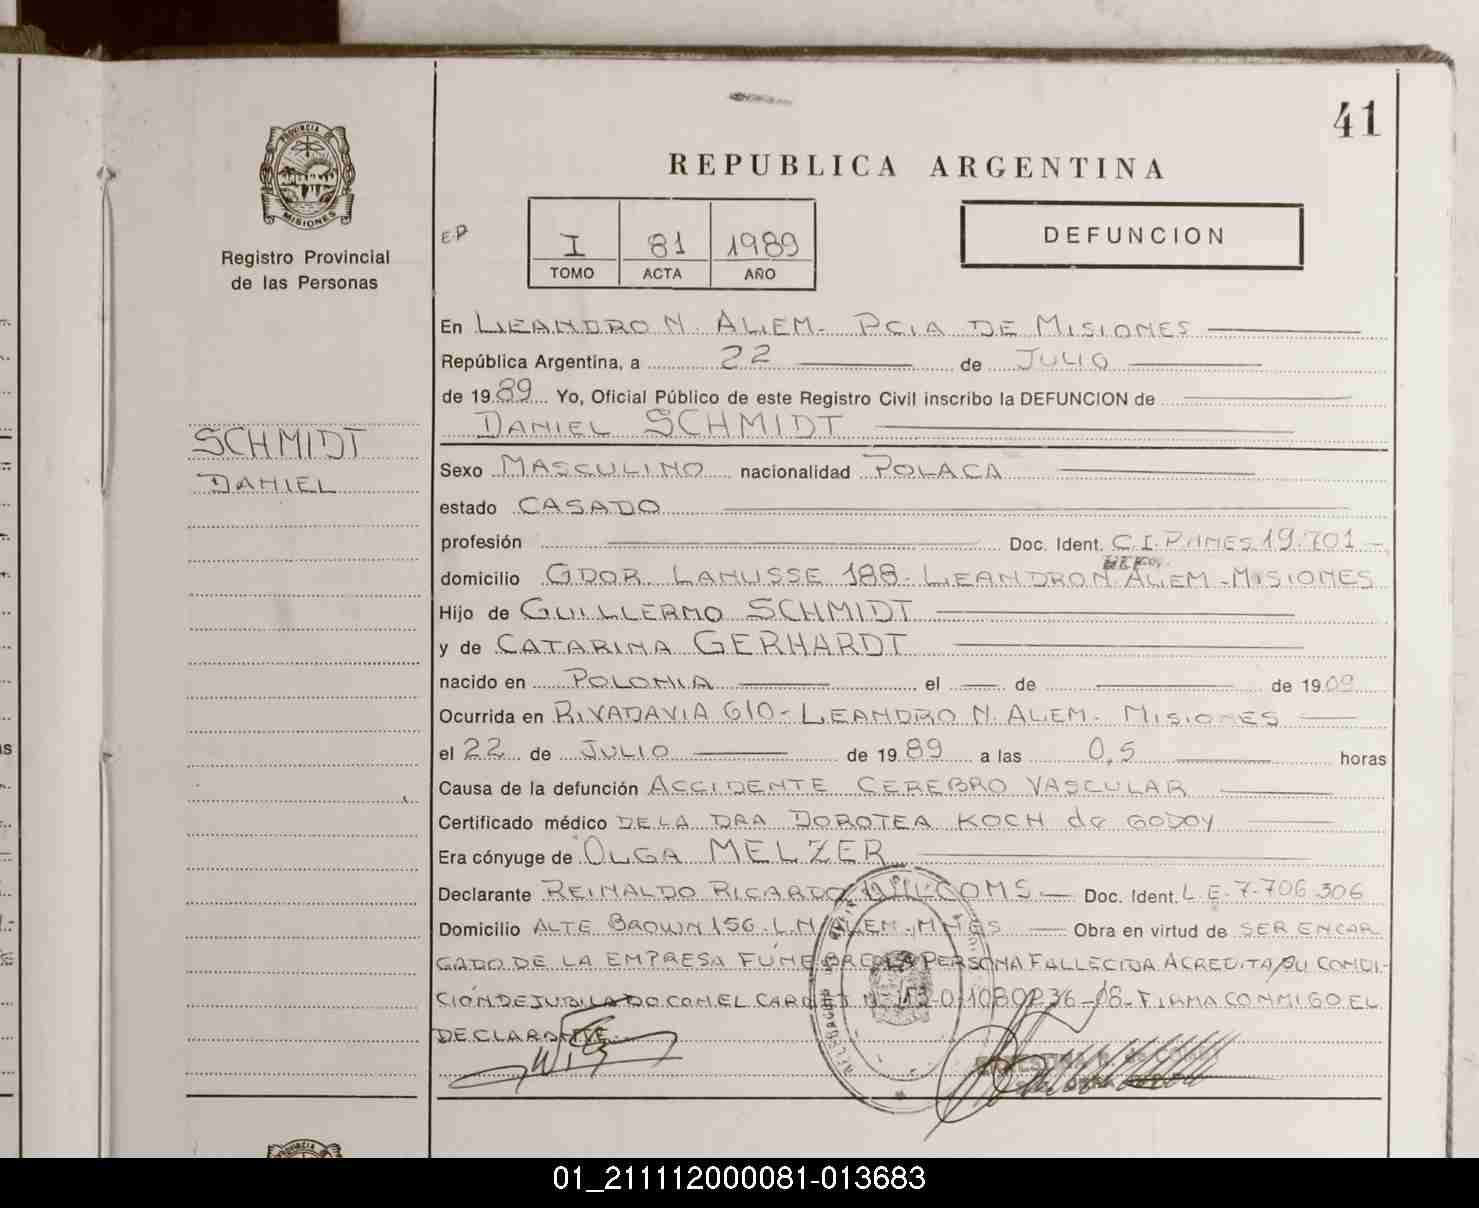 41
REPUBLICA ARGENTINA
PROVINCIA DE
MISIONES
Registro Provincial
de las Personas
I 81 1989
TOMO ACTA AÑO
DEFUNCION
En LEANDRO N. ALEM - PCIA DE MISIONES
República Argentina, a 22 de JULIO
de 1989 Yo, Oficial Público de este Registro Civil inscribo la DEFUNCION de
DANIEL SCHMIDT
SCHMIDT
DANIEL
Sexo MASCULINO nacionalidad POLACA
estado CASADO
profesión Doc. Ident. C.I.P. MNES 19.701 -
domicilio GDOR. LANUSSE 188 - LEANDRO N. ALEM - MISIONES
Hijo de GUILLERMO SCHMIDT
y de CATARINA GERHARDT
nacido en POLONIA el de de 1909
Ocurrida en RIVADAVIA 610 - LEANDRO N. ALEM - MISIONES
el 22 de JULIO de 1989 a las 0,5 horas
Causa de la defunción ACCIDENTE CEREBRO VASCULAR
Certificado médico DE LA DRA DOROTEA KOCH de GODOY
Era cónyuge de OLGA MELZER
Declarante REINALDO RICARDO WILLCOMS - Doc. Ident. L.E. 7.706.306
Domicilio ALTE BROWN 156 - L.N. ALEM - MNES Obra en virtud de SER ENCAR
GADO DE LA EMPRESA FUNEBRE LA PERSONA FALLECIDA ACREDITA SU CONDI-
CIÓN DE JUBILADO CON EL CARNET Nº 153-0-1080236-08 - FIRMA CONMIGO EL
DECLARANTE.
01_211112000081-013683